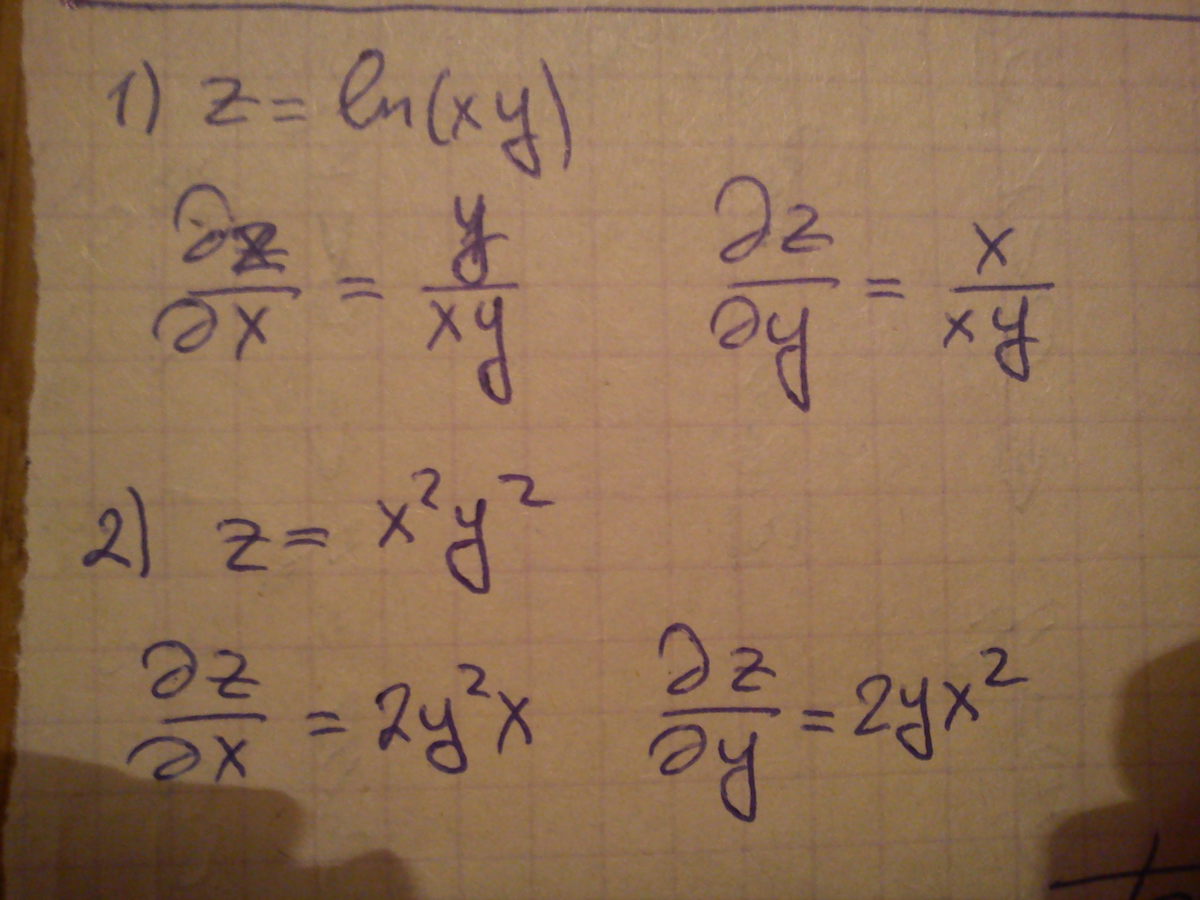 1) z = ln(xy)
∂z/∂x = y/xy ∂z/∂y = x/xy
2) z = x²y²
∂z/∂x = 2y²x ∂z/∂y = 2yx²